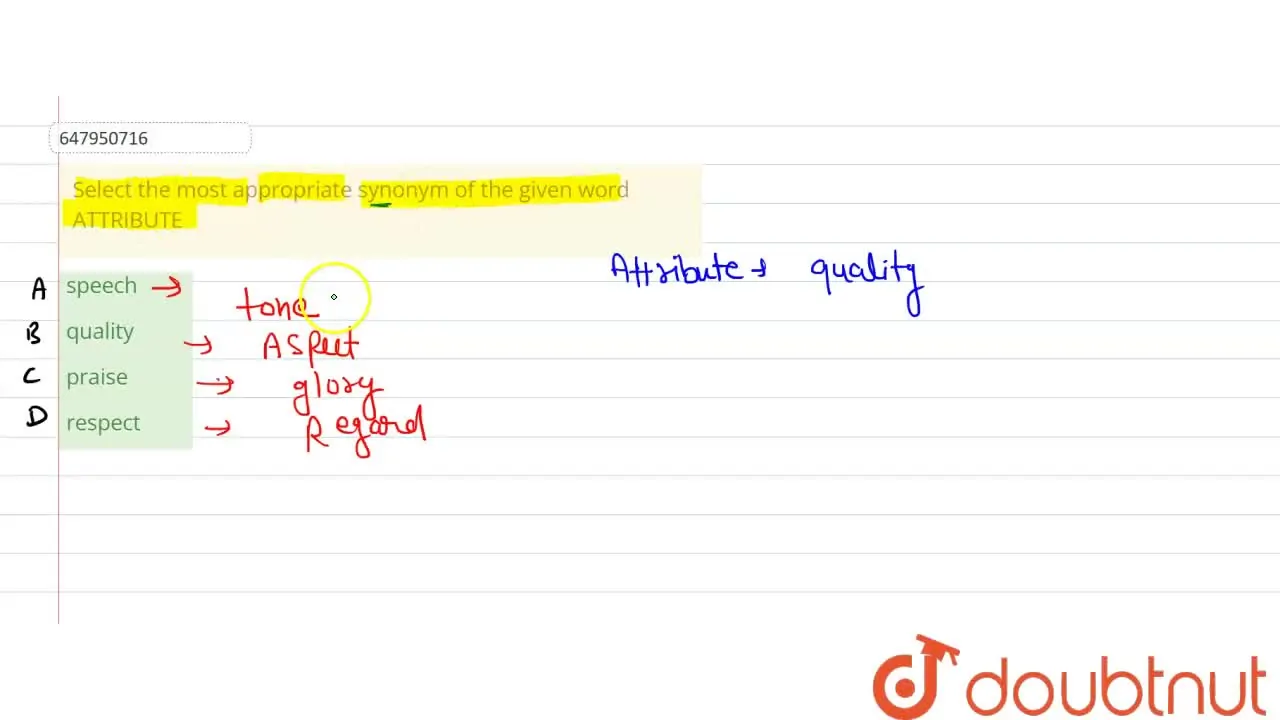 647950716
Select the most appropriate synonym of the given word
ATTRIBUTE
Attribute → quality
A speech → tone
B quality → Aspect
C praise → glory
D respect → Regard
doubtnut